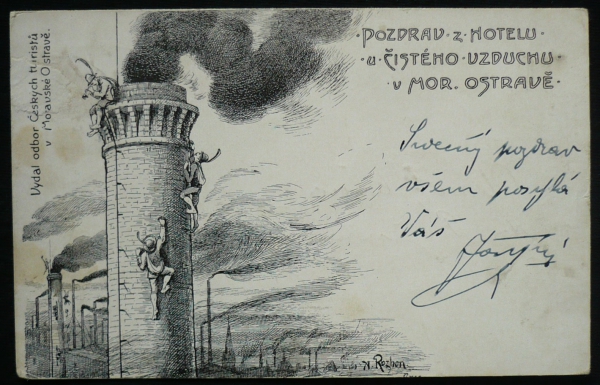 Vydal odbor Českých turistů
v Moravské Ostravě.
·POZDRAV·Z·HOTELU·
·U·ČISTÉHO·VZDUCHU·
·V·MOR.·OSTRAVĚ·
Srdečný pozdrav
všem posýlá
Váš